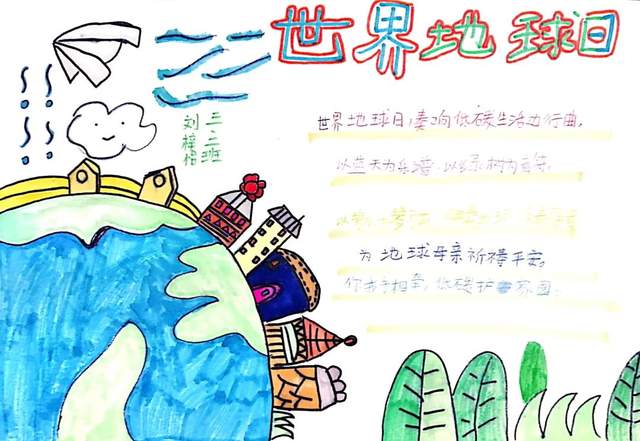 世界地球日
三、三班
刘梓怡
世界地球日,奏响低碳生活进行曲,
以蓝天为乐谱,以绿树为音符,
为地球母亲祈祷平安。
你我手相牵,低碳护家园。